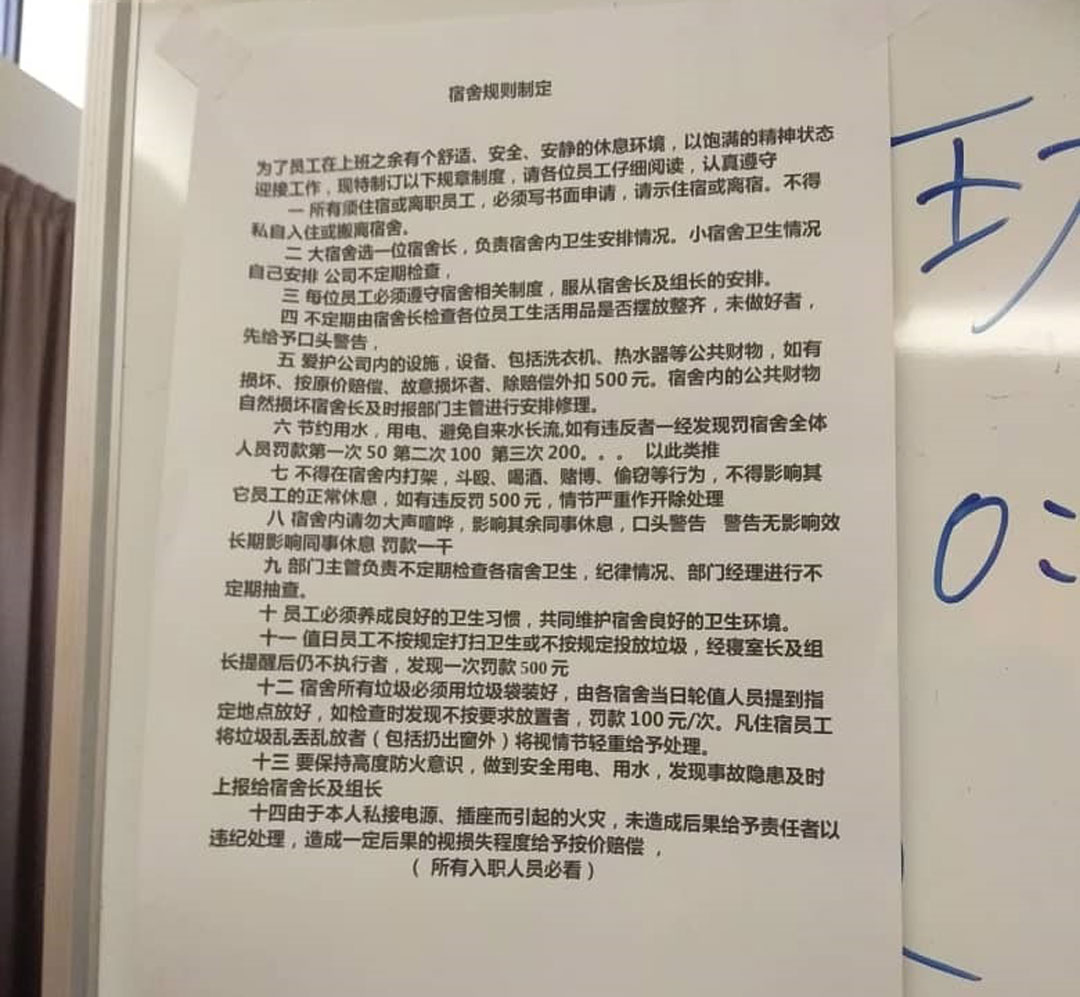 宿舍规则制定
为了员工在上班之余有个舒适、安全、安静的休息环境，以饱满的精神状态
迎接工作，现特制订以下规章制度，请各位员工仔细阅读，认真遵守
一 所有须住宿或离职员工，必须写书面申请，请示住宿或离宿。不得
私自入住或搬离宿舍。
二 大宿舍选一位宿舍长，负责宿舍内卫生安排情况。小宿舍卫生情况
自己安排 公司不定期检查，
三 每位员工必须遵守宿舍相关制度，服从宿舍长及组长的安排。
四 不定期由宿舍长检查各位员工生活用品是否摆放整齐，未做好者，
先给予口头警告，
五 爱护公司内的设施，设备、包括洗衣机、热水器等公共财物，如有
损坏、按原价赔偿、故意损坏者、除赔偿外扣 500 元。宿舍内的公共财物
自然损坏宿舍长及时报部门主管进行安排修理。
六 节约用水，用电、避免自来水长流,如有违反者一经发现罚宿舍全体
人员罚款第一次 50 第二次 100 第三次 200。。。 以此类推
七 不得在宿舍内打架，斗殴、喝酒、赌博、偷窃等行为，不得影响其
它员工的正常休息，如有违反罚 500 元，情节严重作开除处理
八 宿舍内请勿大声喧哗，影响其余同事休息，口头警告 警告无影响效
长期影响同事休息 罚款一千
九 部门主管负责不定期检查各宿舍卫生，纪律情况、部门经理进行不
定期抽查。
十 员工必须养成良好的卫生习惯，共同维护宿舍良好的卫生环境。
十一 值日员工不按规定打扫卫生或不按规定投放垃圾，经寝室长及组
长提醒后仍不执行者，发现一次罚款 500 元
十二 宿舍所有垃圾必须用垃圾袋装好，由各宿舍当日轮值人员提到指
定地点放好，如检查时发现不按要求放置者，罚款 100 元/次。凡住宿员工
将垃圾乱丢乱放者（包括扔出窗外）将视情节轻重给予处理。
十三 要保持高度防火意识，做到安全用电、用水，发现事故隐患及时
上报给宿舍长及组长
十四由于本人私接电源、插座而引起的火灾，未造成后果给予责任者以
违纪处理，造成一定后果的视损失程度给予按价赔偿 ，
（ 所有入职人员必看）